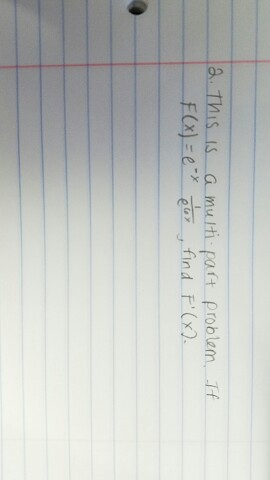 2. This is a multi-part problem. If
F(x) = e^-x 1/e^6x, find F'(x).